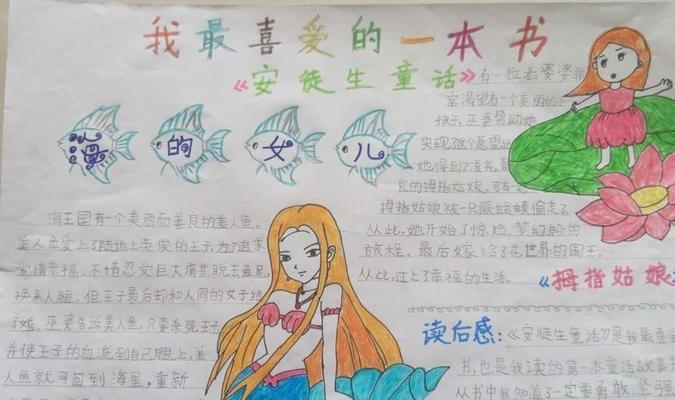 我最喜爱的一本书
《安徒生童话》
海的女儿
有一位老婆婆非
常渴望有一个美丽的
孩子,巫婆帮助她
实现了这个愿望
她得到了漂亮,善
良的拇指姑娘,可有
拇指姑娘被一只癞蛤蟆偷走了
从此,她开始了惊险,梦幻般的
旅程。最后嫁给了花世界的国王。
从此,过上了幸福的生活。
《拇指姑娘
海王国有一个美丽而善良的美人鱼。
美人鱼爱上了陆地上英俊的王子,为了追求
爱情幸福,不惜忍受巨大痛苦,脱去鱼尾,
换来人腿,但王子最后却和人间的女子结
了婚。巫婆告诉美人鱼,只要杀死王子
并使王子的血流到自己腿上,美
人鱼就可回到海里,重新
读后感:《安徒生童话》是我最喜
书,也是我读的第一本童话故事
从书中我知道了一定要勇敢、坚强